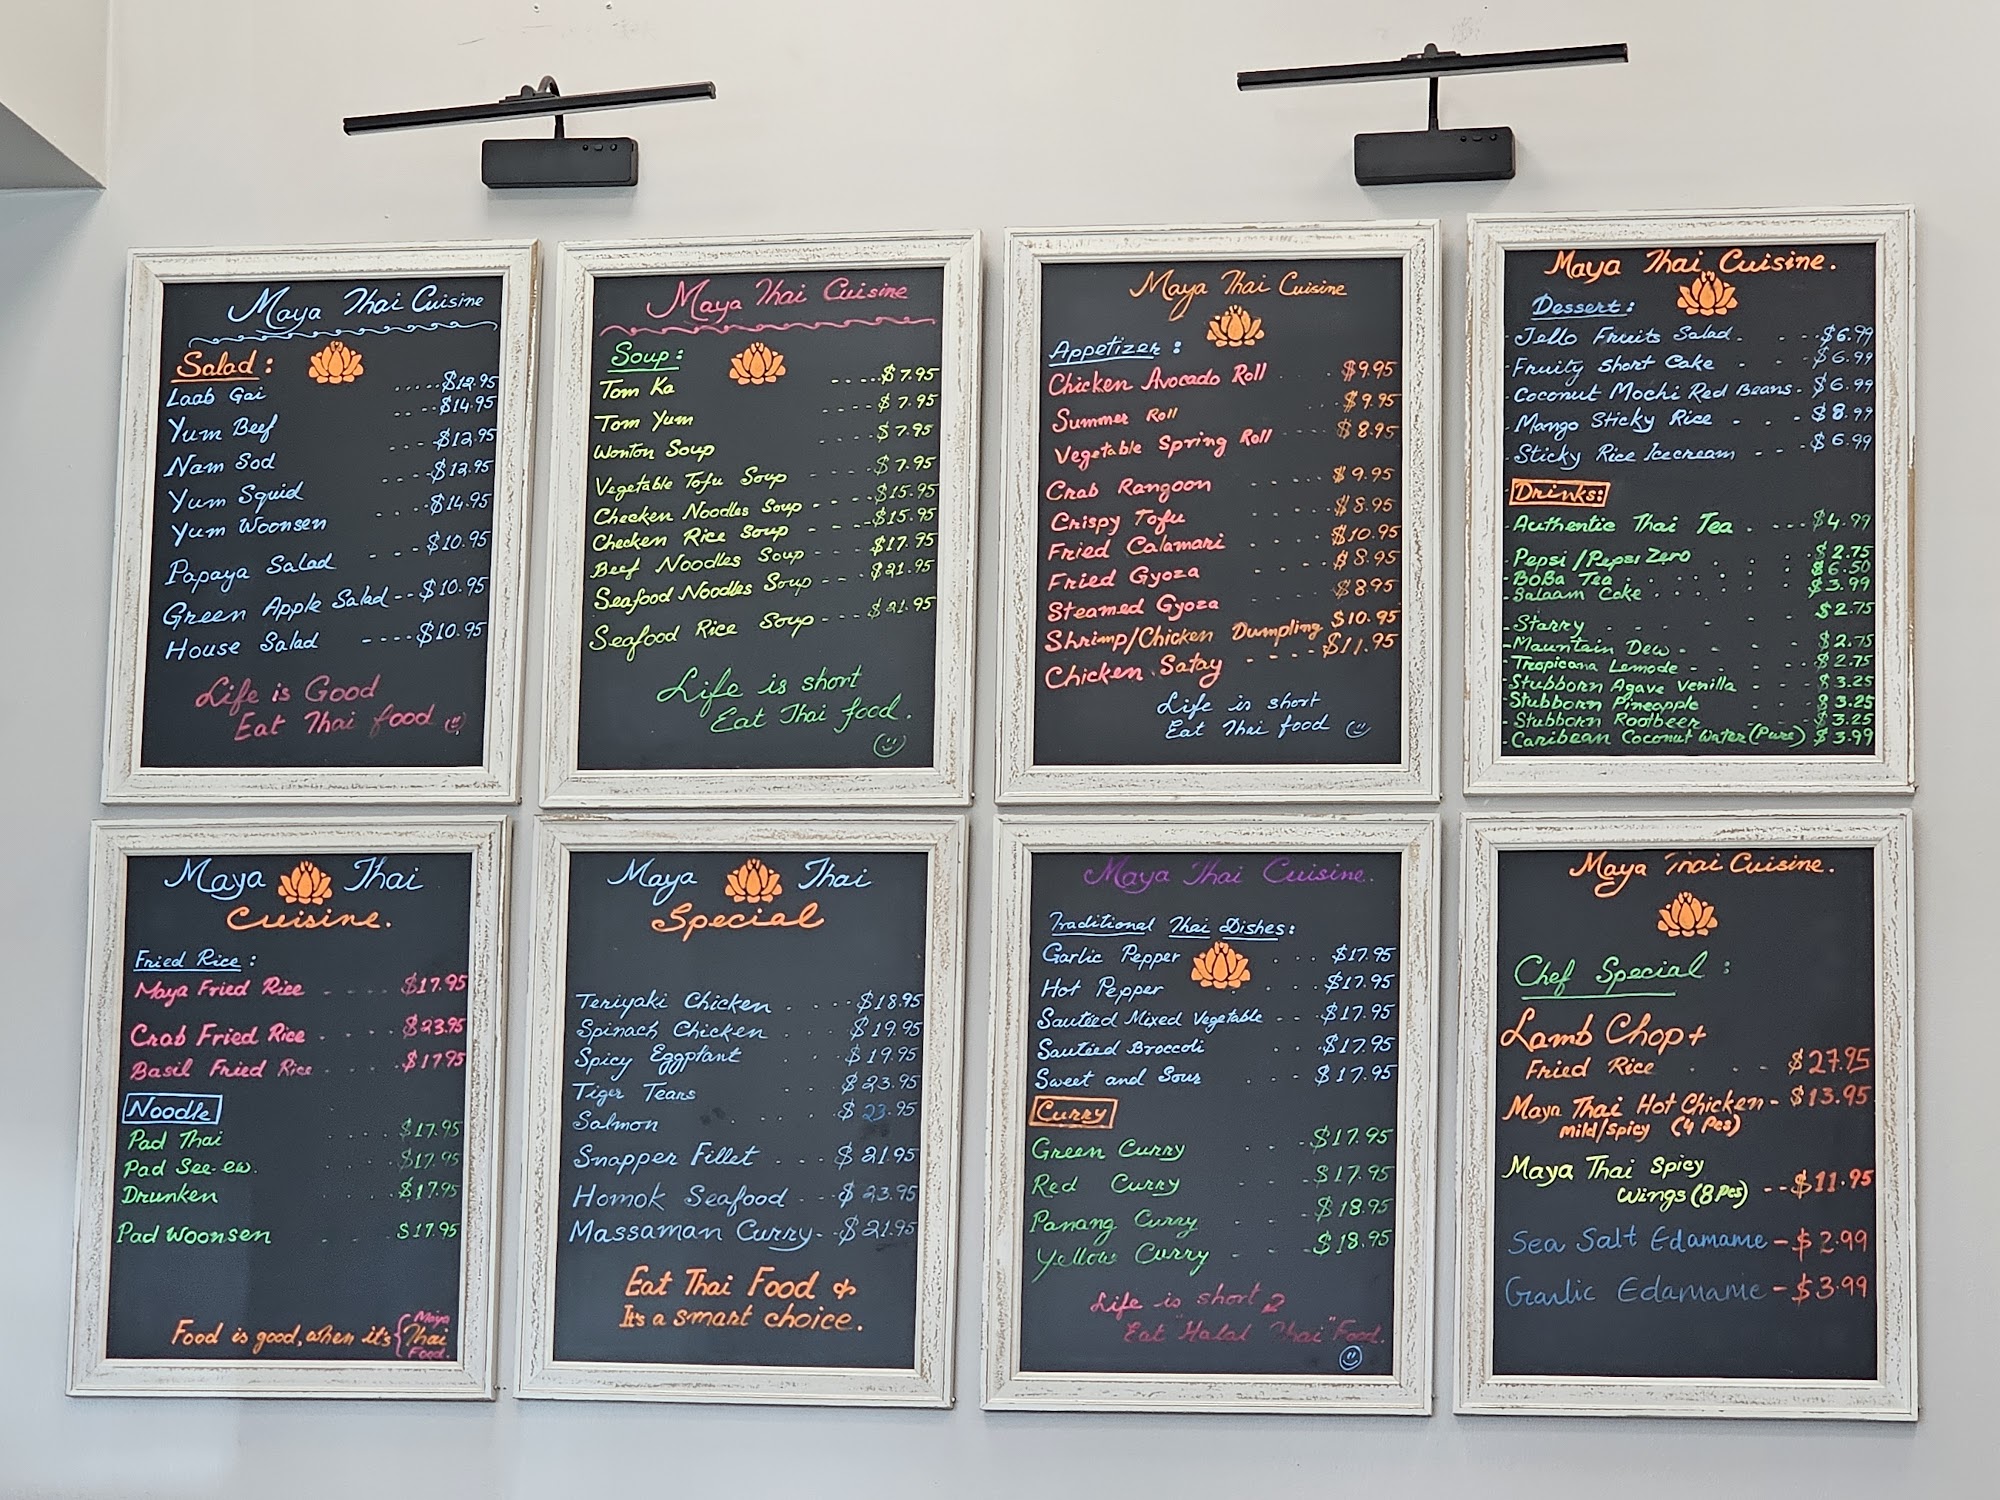 Maya Thai Cuisine
Salad :
Laab Gai .....$12.95
Yum Beef ....$14.95
Nam Sod ...$12.95
Yum Squid ...$12.95
Yum Woonsen ...$14.95
Papaya Salad ---$10.95
Green Apple Salad--$10.95
House Salad ----$10.95
Life is Good
Eat Thai food
Maya Thai Cuisine
Soup :
Tom Ka -----$7.95
Tom Yum ----$7.95
Wonton Soup ----$7.95
Vegetable Tofu Soup ---$7.95
Checken Noodles Soup ---$15.95
Checken Rice Soup ---$15.95
Beef Noodles Soup ---$17.95
Seafood Noodles Soup ---$21.95
Seafood Rice Soup ---$21.95
Life is short
Eat Thai food.
Maya Thai Cuisine
Appetizer :
Chicken Avocado Roll ...$9.95
Summer Roll ...$9.95
Vegetable Spring Roll ...$8.95
Crab Rangoon ....$9.95
Crispy Tofu ....$8.95
Fried Calamari ....$10.95
Fried Gyoza ....$8.95
Steamed Gyoza ....$8.95
Shrimp/Chicken Dumpling $10.95
Chicken Satay ----$11.95
Life is short
Eat Thai food
Maya Thai Cuisine.
Dessert :
- Jello Fruits Salad. - --$6.99
- Fruity Short Cake - - -$6.99
- Coconut Mochi Red Beans- $6.99
- Mango Sticky Rice . - - $8.99
- Sticky Rice Icecream -- - $6.99
Drinks:
- Authentic Thai Tea . ---$4.99
- Pepsi/Pepsi Zero . . . $2.75
- BoBa Tea . . . . $6.50
- Balaam Coke . . . . $3.99
- Starry - - - - $2.75
- Mauntain Dew - - - $2.75
- Tropicana Lemode - - - $2.75
- Stubborn Agave Venilla - - $3.25
- Stubborn Pineapple - - $3.25
- Stubborn Rootbeer - - - $3.25
- Caribean Coconut Water (Pure) $3.99
Maya Thai
Cuisine.
Fried Rice :
Maya Fried Rice ....$17.95
Crab Fried Rice ....$23.95
Basil Fried Rice ....$17.95
Noodle
Pad Thai ....$17.95
Pad See-ew. ....$17.95
Drunken ....$17.95
Pad Woonsen . . $17.95
Food is good, when it's { Maya
Thai
Food.
Maya Thai
Special
Teriyaki Chicken . ...$18.95
Spinach Chicken ...$19.95
Spicy Eggplant ...$19.95
Tiger Tears ...$23.95
Salmon ...$23.95
Snapper Fillet ...$21.95
Homok Seafood --$23.95
Massaman Curry--$21.95
Eat Thai Food &
It's a smart choice.
Maya Thai Cuisine.
Traditional Thai Dishes:
Garlic Pepper ...$17.95
Hot Pepper ...$17.95
Sautéed Mixed Vegetable ---$17.95
Sautéed Broccoli ...$17.95
Sweet and Sour ...$17.95
Curry
Green Curry ....$17.95
Red Curry ...$17.95
Panang Curry ...$18.95
Yellow Curry ...$18.95
Life is short
Eat "Halal Thai" Food.
Maya Thai Cuisine.
Chef Special :
Lamb Chop+
Fried Rice . . - $27.95
Maya Thai Hot Chicken- $13.95
mild/spicy (4 Pcs)
Maya Thai Spicy
Wings (8 Pcs) --$11.95
Sea Salt Edamame -$2.99
Garlic Edamame -$3.99